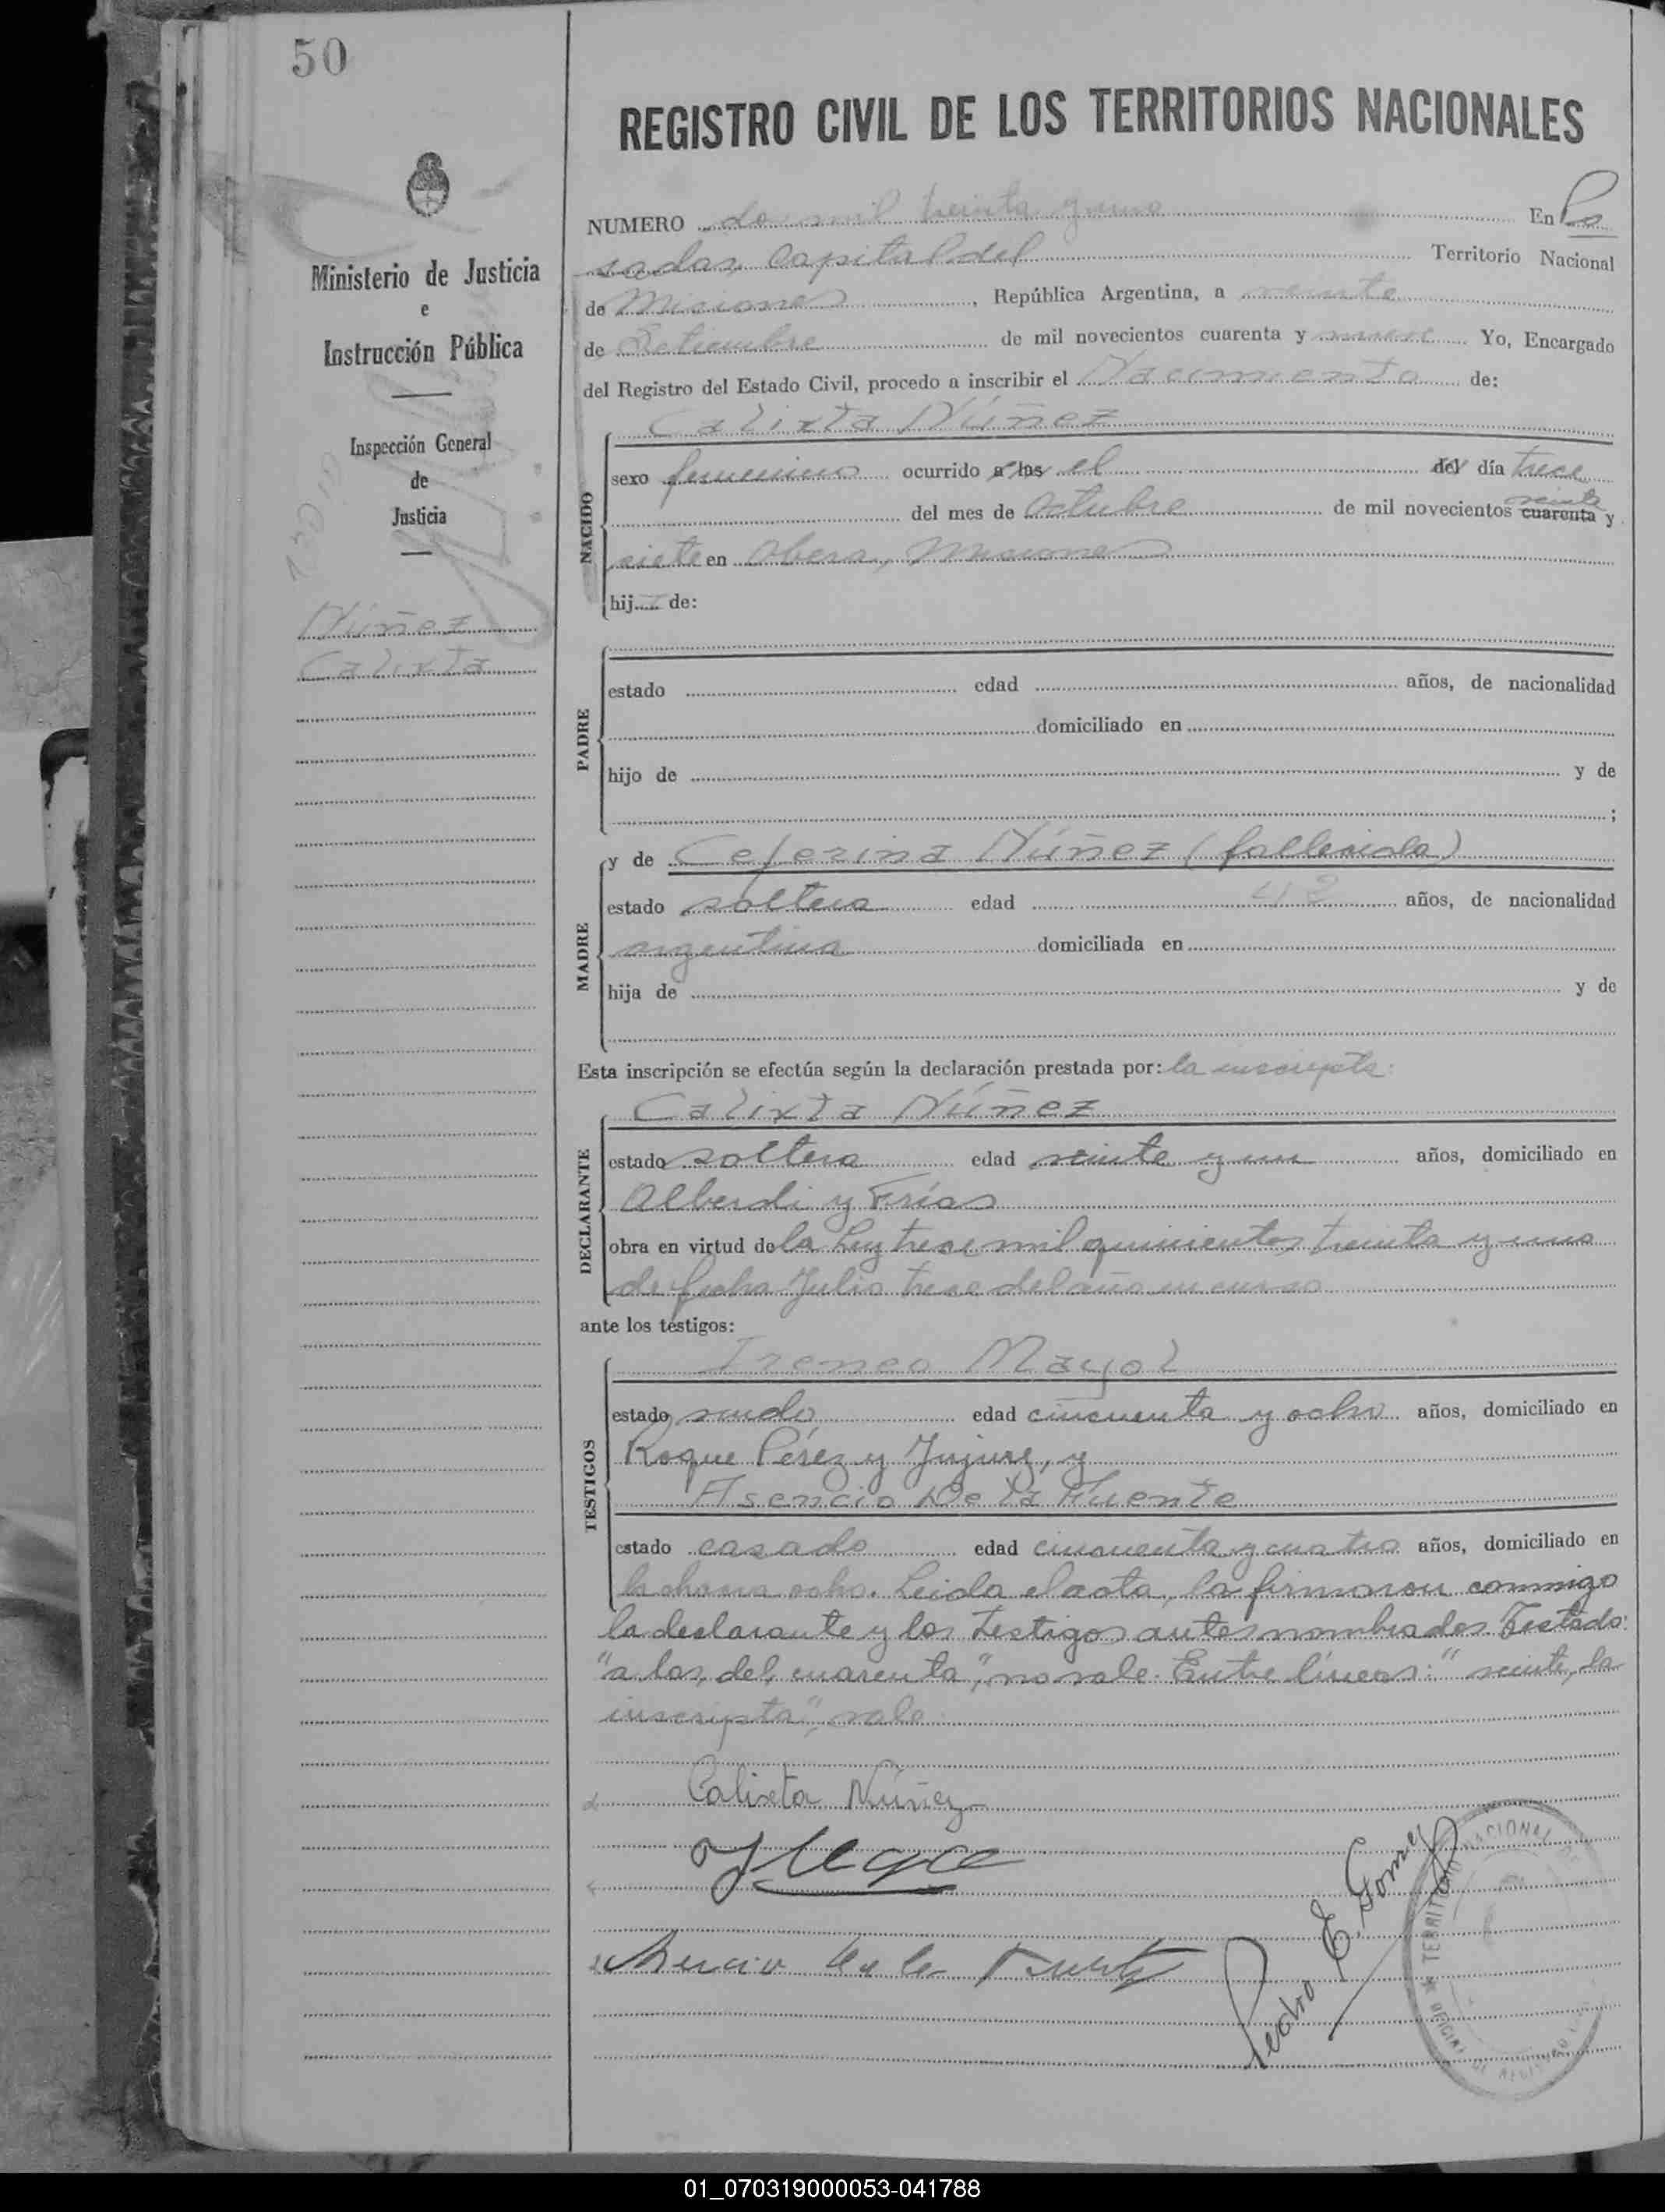 50
REGISTRO CIVIL DE LOS TERRITORIOS NACIONALES
Ministerio de Justicia
e
Instrucción Pública
Inspección General
de
Justicia
Núñez
Calixta
NUMERO dos mil treinta y uno En Po
sadas, Capital del Territorio Nacional
de Misiones, República Argentina, a veinte
de Setiembre de mil novecientos cuarenta y nueve Yo, Encargado
del Registro del Estado Civil, procedo a inscribir el Nacimiento de:
NACIDO
Calixta Núñez
sexo femenino ocurrido a las el del día trece
veinte
del mes de Octubre de mil novecientos cuarenta y
siete en Obera, Misiones
hija de:
PADRE
estado edad años, de nacionalidad
domiciliado en
hijo de y de
;
MADRE
y de Ceferina Núñez (fallecida)
estado soltera edad 42 años, de nacionalidad
argentina domiciliada en
hija de y de
Esta inscripción se efectúa según la declaración prestada por: la inscripta:
DECLARANTE
Calixta Núñez
estado soltera edad veinte y un años, domiciliado en
Alberdi y Frías
obra en virtud de la Ley trece mil quinientos treinta y uno
de fecha Julio trece del año en curso
ante los testigos:
TESTIGOS
Ireneo Mayol
estado viudo, edad cincuenta y ocho años, domiciliado en
Roque Pérez y Jujuy, y
Asencio De la Fuente
estado casado edad cincuenta y cuatro años, domiciliado en
la chacra ocho. Leida el acta, la firmaron conmigo
la declarante y los testigos antes nombrados Testado:
"a las, del, cuarenta", no vale. Entre líneas: "veinte, la
inscripta", vale.
Calixta Núñez
Asencio de la Fuente
Pedro E. Gomez
TERRITORIO NACIONAL DE
01_070319000053-041788